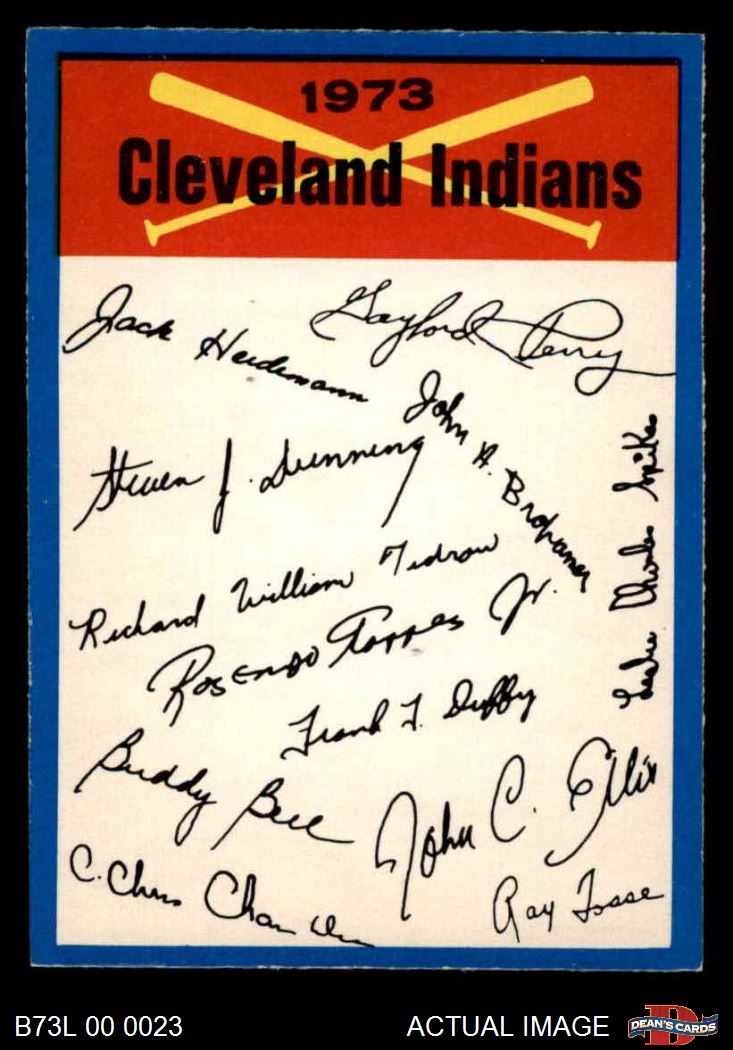 1973
Cleveland Indians
Jack Heidemann
Gaylord Perry
John A. Brohamer
Steven J. Dunning
Leslie Charles Spikes
Richard William Tidrow
Rosendo Torres Jr.
Frank T. Duffy
Buddy Bell
John C. Ellis
C. Chris Cham
Ray Fosse
B73L 00 0023
ACTUAL IMAGE
D
DEAN'S CARDS